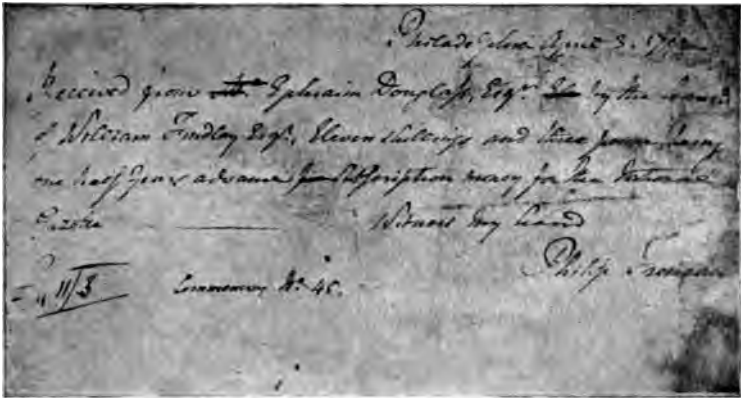 Philadelphia April 3. 179
Received from Ephraim Douglass, Esqr. by the hand
of William Findley Esqr. Eleven shillings and three pence being
one half Year's advance Subscription money for the National
Gazette ——— Witness my hand
Philip Freneau
11/3 Commencing No. 45.